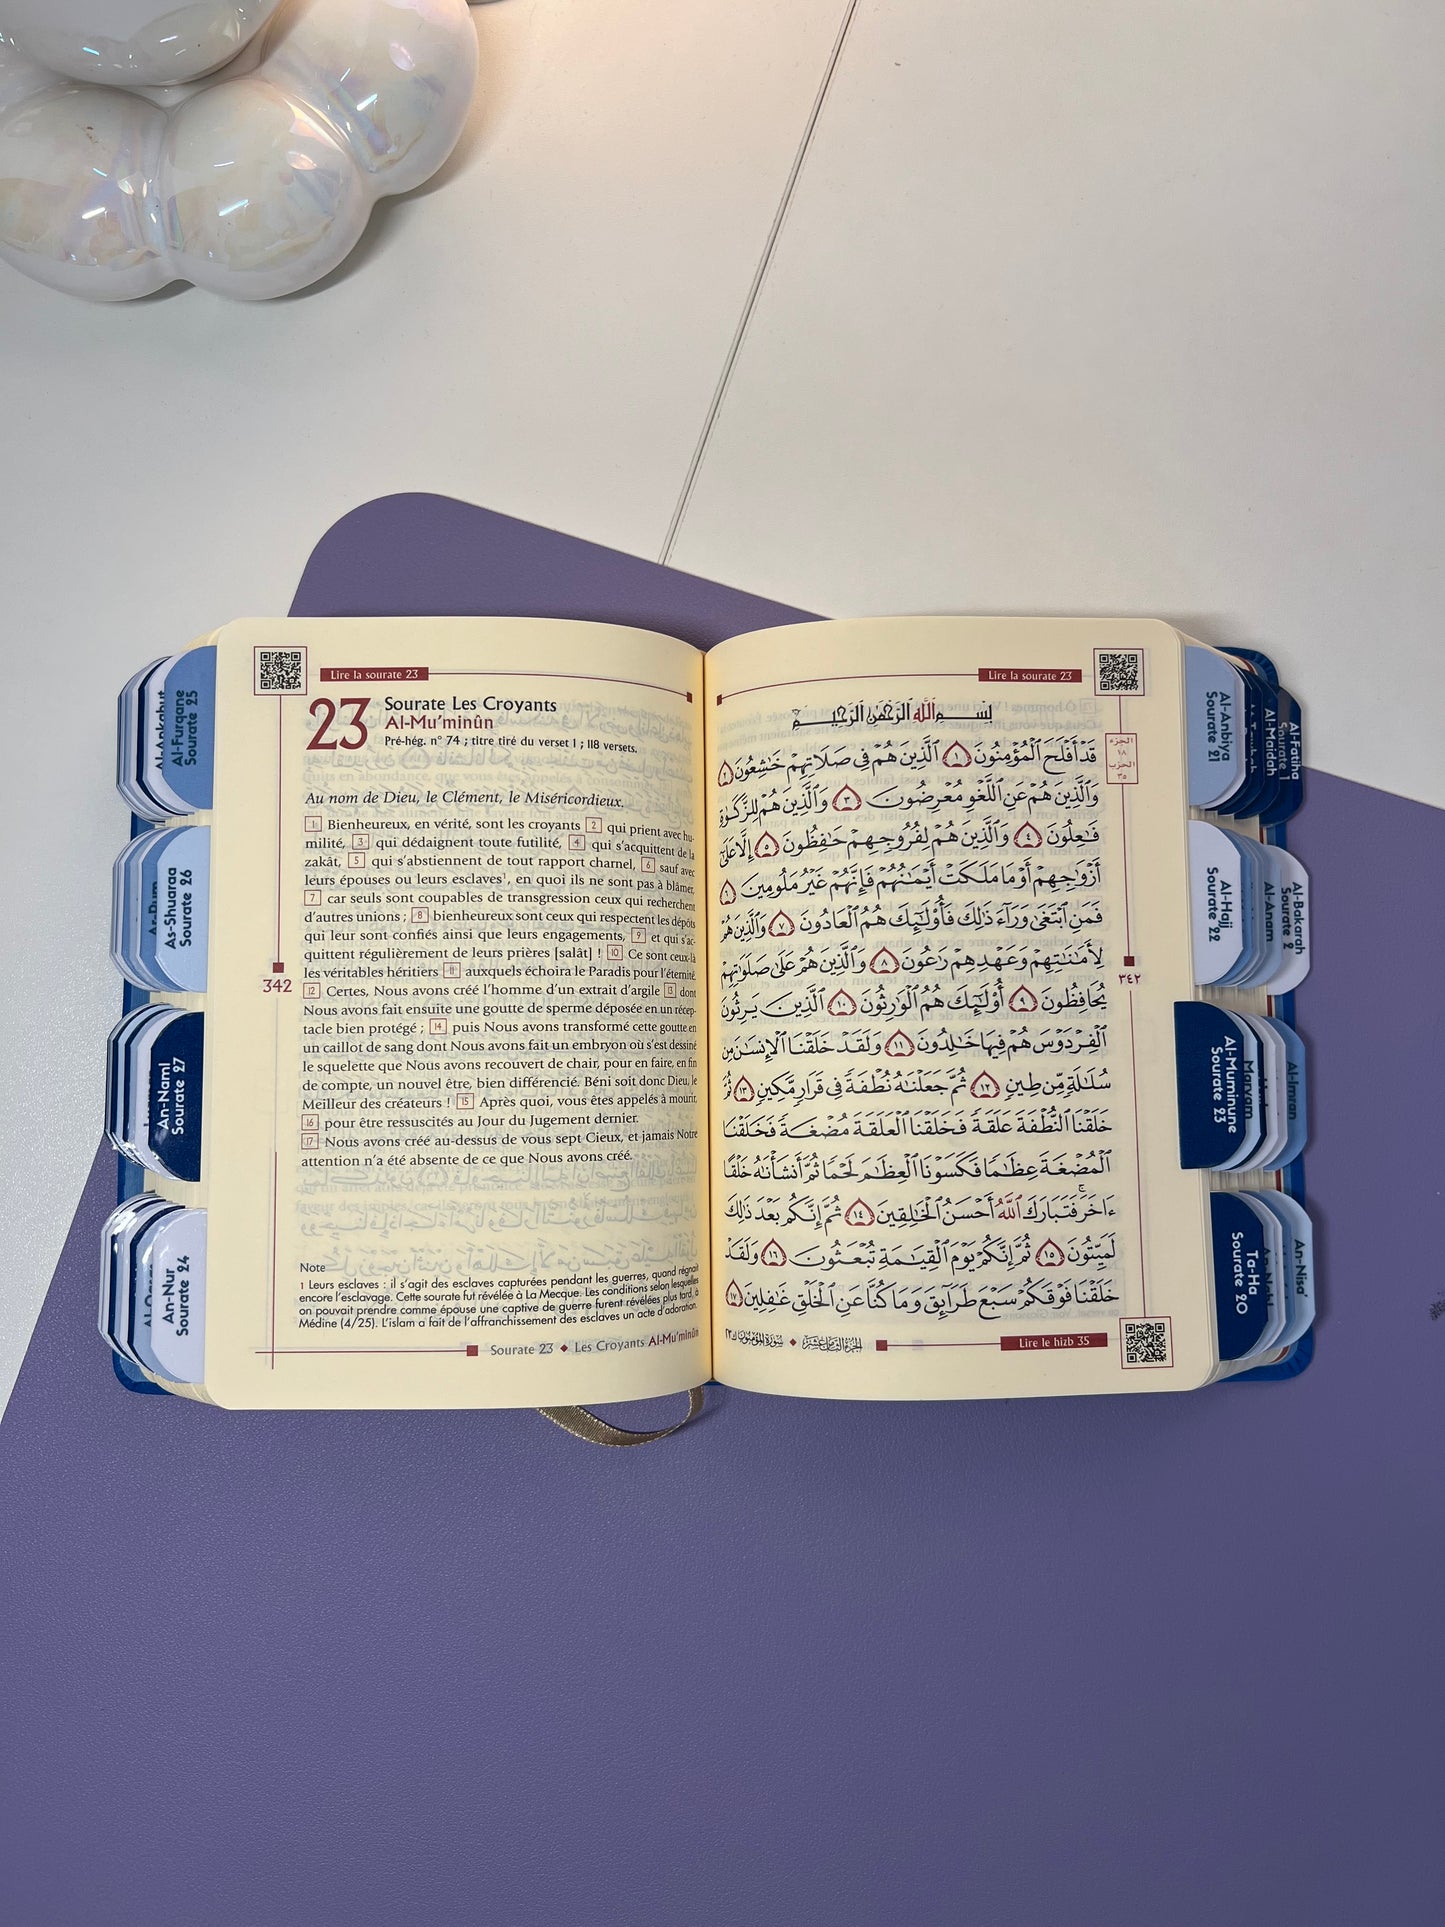 Lire la sourate 23
23
Sourate Les Croyants
Al-Mu’minûn
Pré-hég. n° 74 ; titre tiré du verset 1 ; 118 versets.
Au nom de Dieu, le Clément, le Miséricordieux.
1 Bienheureux, en vérité, sont les croyants 2 qui prient avec hu-
milité, 3 qui dédaignent toute futilité, 4 qui s’acquittent de la
zakât, 5 qui s’abstiennent de tout rapport charnel, 6 sauf avec
leurs épouses ou leurs esclaves¹, en quoi ils ne sont pas à blâmer,
7 car seuls sont coupables de transgression ceux qui recherchent
d’autres unions ; 8 bienheureux sont ceux qui respectent les dépôts
qui leur sont confiés ainsi que leurs engagements, 9 et qui s’ac-
quittent régulièrement de leurs prières [salât] ! 10 Ce sont ceux-là
les véritables héritiers 11 auxquels échoira le Paradis pour l’éternité.
12 Certes, Nous avons créé l’homme d’un extrait d’argile 13 dont
Nous avons fait ensuite une goutte de sperme déposée en un récep-
tacle bien protégé ; 14 puis Nous avons transformé cette goutte en
un caillot de sang dont Nous avons fait un embryon où s’est dessiné
le squelette que Nous avons recouvert de chair, pour en faire, en fin
de compte, un nouvel être, bien différencié. Béni soit donc Dieu, le
Meilleur des créateurs ! 15 Après quoi, vous êtes appelés à mourir,
16 pour être ressuscités au Jour du Jugement dernier.
17 Nous avons créé au-dessus de vous sept Cieux, et jamais Notre
attention n’a été absente de ce que Nous avons créé.
Note
1 Leurs esclaves : il s’agit des esclaves capturées pendant les guerres, quand régnait
encore l’esclavage. Cette sourate fut révélée à La Mecque. Les conditions selon lesquelles
on pouvait prendre comme épouse une captive de guerre furent révélées plus tard, à
Médine (4/25). L’islam a fait de l’affranchissement des esclaves un acte d’adoration.
Sourate 23 ◆ Les Croyants Al-Mu’minûn
342
Lire la sourate 23
بِسْمِ ٱللَّهِ ٱلرَّحْمَٰنِ ٱلرَّحِيمِ
قَدْ أَفْلَحَ ٱلْمُؤْمِنُونَ ١ ٱلَّذِينَ هُمْ فِى صَلَاتِهِمْ خَٰشِعُونَ ٢
وَٱلَّذِينَ هُمْ عَنِ ٱللَّغْوِ مُعْرِضُونَ ٣ وَٱلَّذِينَ هُمْ لِلزَّكَوٰةِ
فَٰعِلُونَ ٤ وَٱلَّذِينَ هُمْ لِفُرُوجِهِمْ حَٰفِظُونَ ٥ إِلَّا عَلَىٰٓ
أَزْوَٰجِهِمْ أَوْ مَا مَلَكَتْ أَيْمَٰنُهُمْ فَإِنَّهُمْ غَيْرُ مَلُومِينَ ٦
فَمَنِ ٱبْتَغَىٰ وَرَآءَ ذَٰلِكَ فَأُو۟لَٰٓئِكَ هُمُ ٱلْعَادُونَ ٧ وَٱلَّذِينَ هُمْ
لِأَمَٰنَٰتِهِمْ وَعَهْدِهِمْ رَٰعُونَ ٨ وَٱلَّذِينَ هُمْ عَلَىٰ صَلَوَٰتِهِمْ
يُحَافِظُونَ ٩ أُو۟لَٰٓئِكَ هُمُ ٱلْوَٰرِثُونَ ١٠ ٱلَّذِينَ يَرِثُونَ
ٱلْفِرْدَوْسَ هُمْ فِيهَا خَٰلِدُونَ ١١ وَلَقَدْ خَلَقْنَا ٱلْإِنسَٰنَ مِن
سُلَٰلَةٍ مِّن طِينٍ ١٢ ثُمَّ جَعَلْنَٰهُ نُطْفَةً فِى قَرَارٍ مَّكِينٍ ١٣ ثُمَّ
خَلَقْنَا ٱلنُّطْفَةَ عَلَقَةً فَخَلَقْنَا ٱلْعَلَقَةَ مُضْغَةً فَخَلَقْنَا
ٱلْمُضْغَةَ عِظَٰمًا فَكَسَوْنَا ٱلْعِظَٰمَ لَحْمًا ثُمَّ أَنشَأْنَٰهُ خَلْقًا
ءَاخَرَ ۚ فَتَبَارَكَ ٱللَّهُ أَحْسَنُ ٱلْخَٰلِقِينَ ١٤ ثُمَّ إِنَّكُم بَعْدَ ذَٰلِكَ
لَمَيِّتُونَ ١٥ ثُمَّ إِنَّكُمْ يَوْمَ ٱلْقِيَٰمَةِ تُبْعَثُونَ ١٦ وَلَقَدْ
خَلَقْنَا فَوْقَكُمْ سَبْعَ طَرَآئِقَ وَمَا كُنَّا عَنِ ٱلْخَلْقِ غَٰفِلِينَ ١٧
الجزء
١٨
الحزب
٣٥
٣٤٢
Lire le hizb 35
Al-Furqane
Sourate 25
As-Shuaraa
Sourate 26
An-Naml
Sourate 27
An-Nur
Sourate 24
Al-Anbiya
Sourate 21
Al-Maidah
Al-Fatiha
Sourate 1
Al-Hajj
Sourate 22
Al-Anam
Al-Bakarah
Sourate 2
Al-Muminune
Sourate 23
Maryam
Al-Imran
Ta-Ha
Sourate 20
An-Nisa'